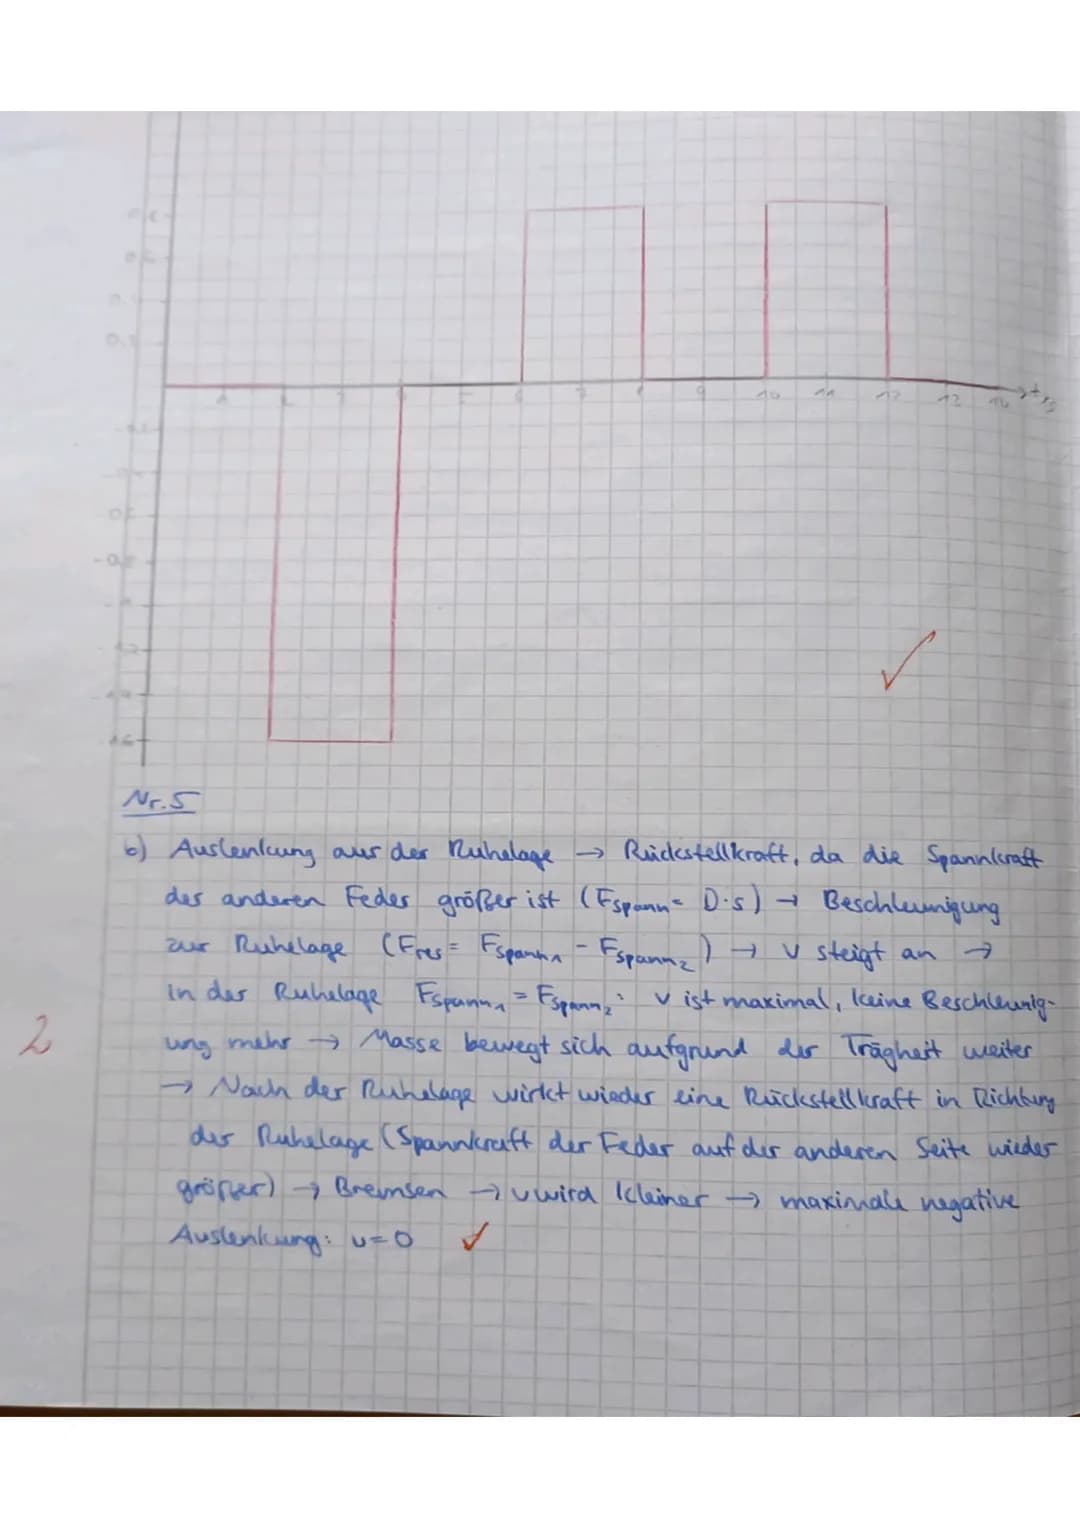 -1,6
9
10
11
12
13
14
Nr.5
b) Auslenkung aus der Ruhelage → Rückstellkraft, da die Spannkraft
der anderen Feder größer ist (Fspann = D·s) → Beschleunigung
zur Ruhelage (Fres = Fspann1 - Fspann2) → v steigt an →
in der Ruhelage Fspann1 = Fspann2: v ist maximal, keine Beschleunig-
2 ung mehr → Masse bewegt sich aufgrund der Trägheit weiter
→ Nach der Ruhelage wirkt wieder eine Rückstellkraft in Richtung
der Ruhelage (Spannkraft der Feder auf der anderen Seite wieder
größer) → Bremsen → v wird kleiner → maximale negative
Auslenkung: v=0